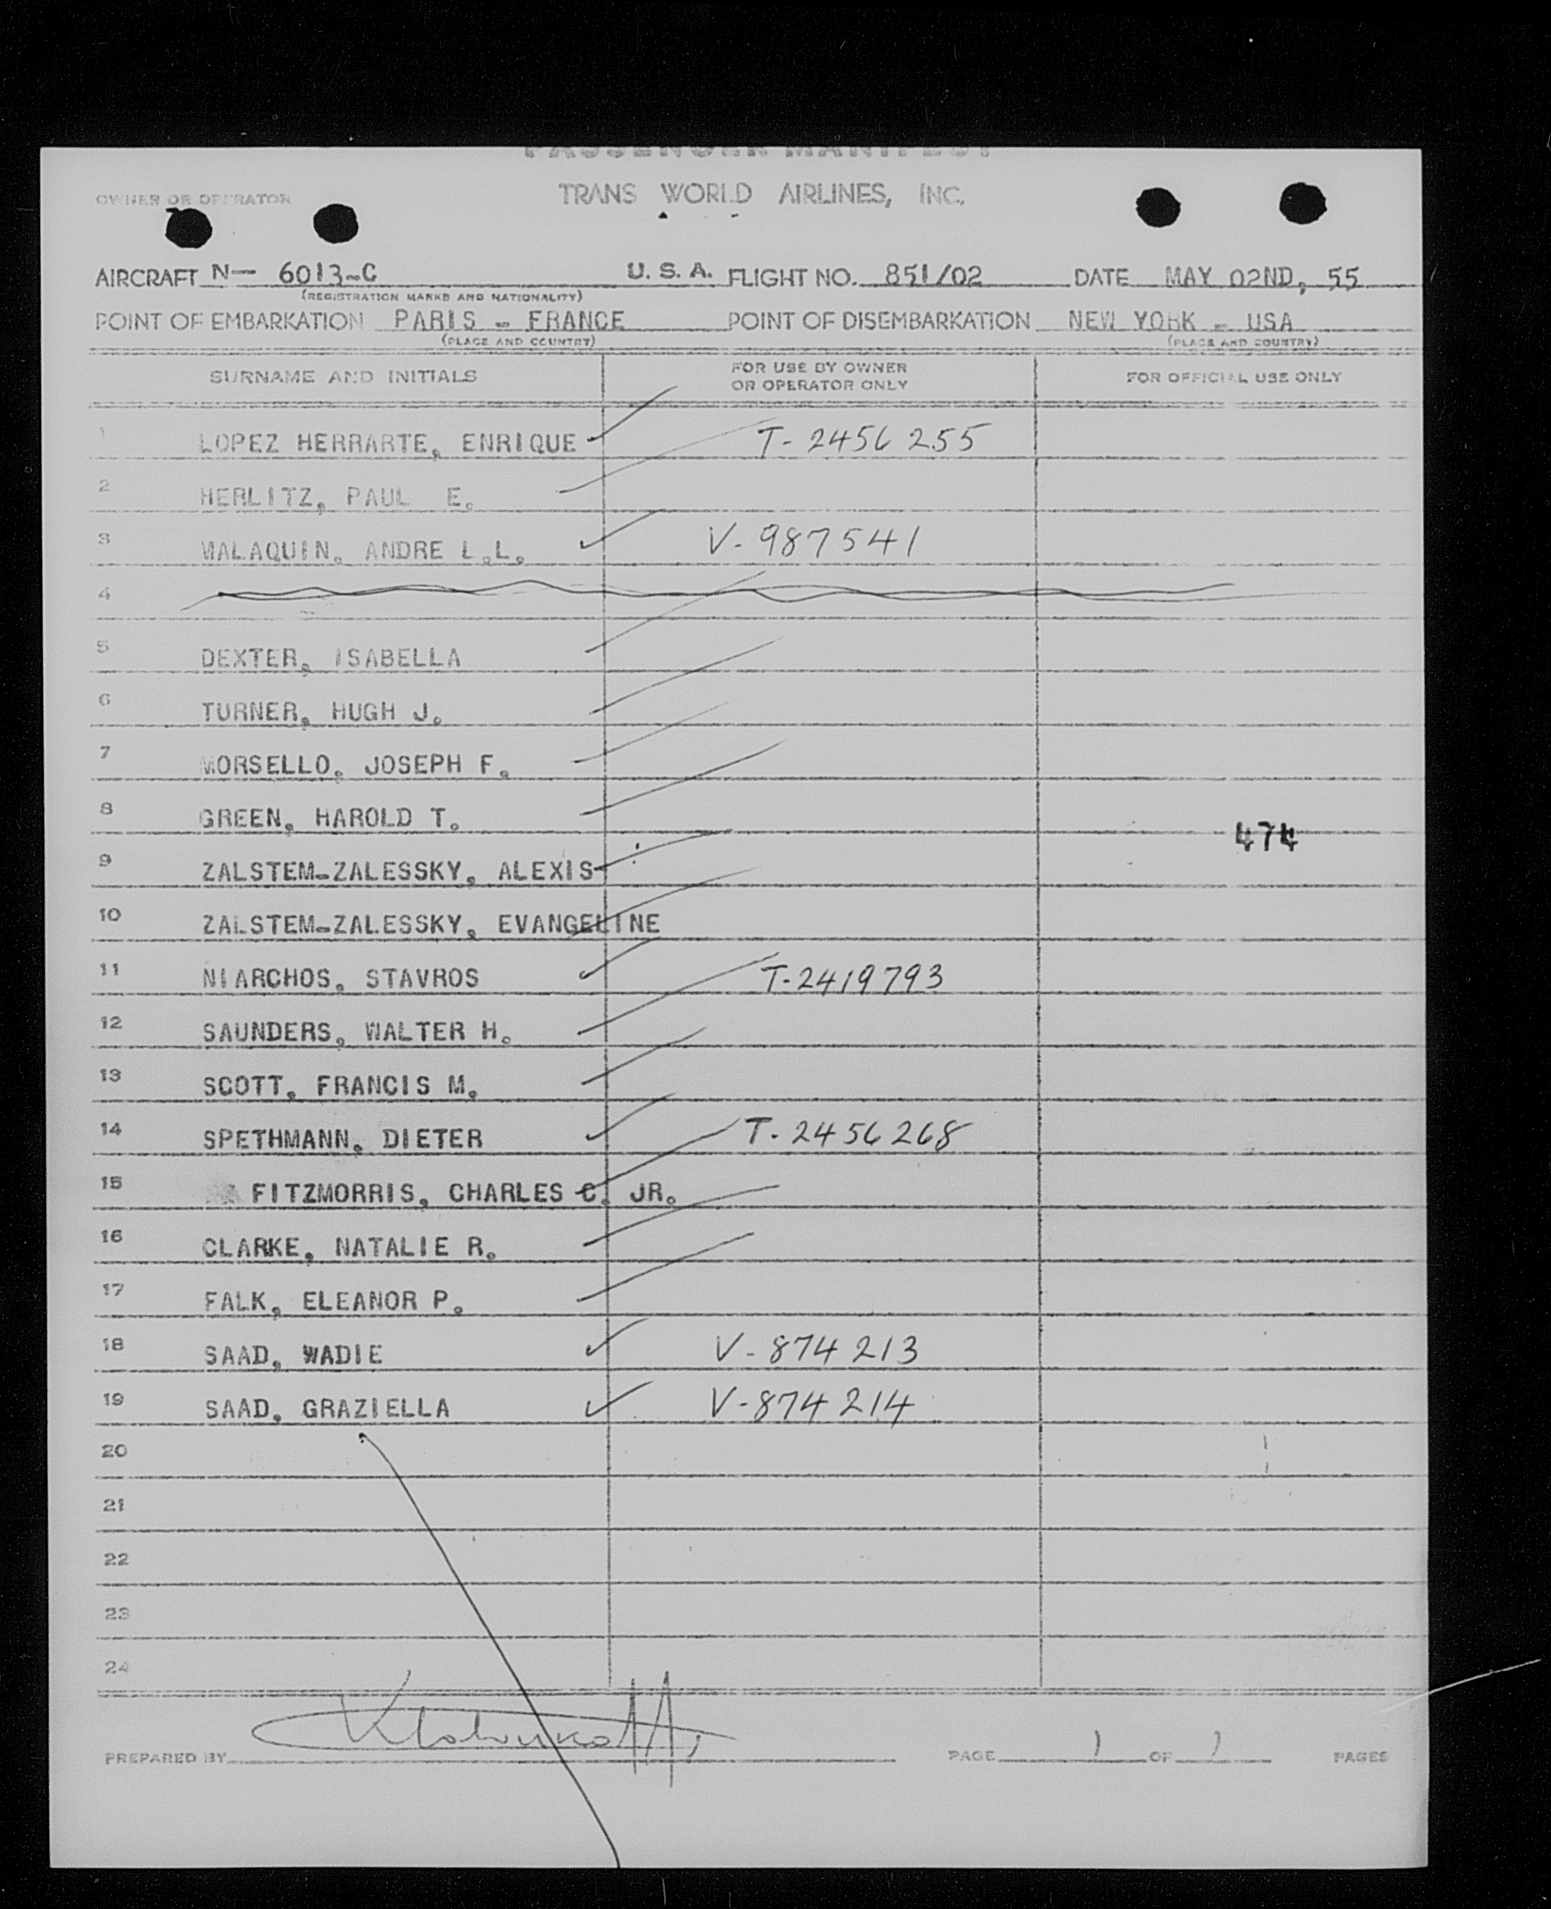 PASSENGER MANIFEST
OWNER OR OPERATOR TRANS WORLD AIRLINES, INC.
AIRCRAFT N— 6013-C U. S. A. FLIGHT NO. 851/02 DATE MAY 02ND, 55
(REGISTRATION MARKS AND NATIONALITY)
POINT OF EMBARKATION PARIS - FRANCE POINT OF DISEMBARKATION NEW YORK - USA
(PLACE AND COUNTRY) (PLACE AND COUNTRY)
SURNAME AND INITIALS FOR USE BY OWNER OR OPERATOR ONLY FOR OFFICIAL USE ONLY
1 LOPEZ HERRARTE, ENRIQUE T-2456255
2 HERLITZ, PAUL E.
3 MALAQUIN, ANDRE L.L. V-987541
4
5 DEXTER, ISABELLA
6 TURNER, HUGH J.
7 MORSELLO, JOSEPH F.
8 GREEN, HAROLD T.
474
9 ZALSTEM-ZALESSKY, ALEXIS
10 ZALSTEM-ZALESSKY, EVANGELINE
11 NIARCHOS, STAVROS T-2419793
12 SAUNDERS, WALTER H.
13 SCOTT, FRANCIS M.
14 SPETHMANN, DIETER T-2456268
15 FITZMORRIS, CHARLES C. JR.
16 CLARKE, NATALIE R.
17 FALK, ELEANOR P.
18 SAAD, WADIE V-874213
19 SAAD, GRAZIELLA V-874214
20
21
22
23
24
PREPARED BY PAGE 1 OF 1 PAGES